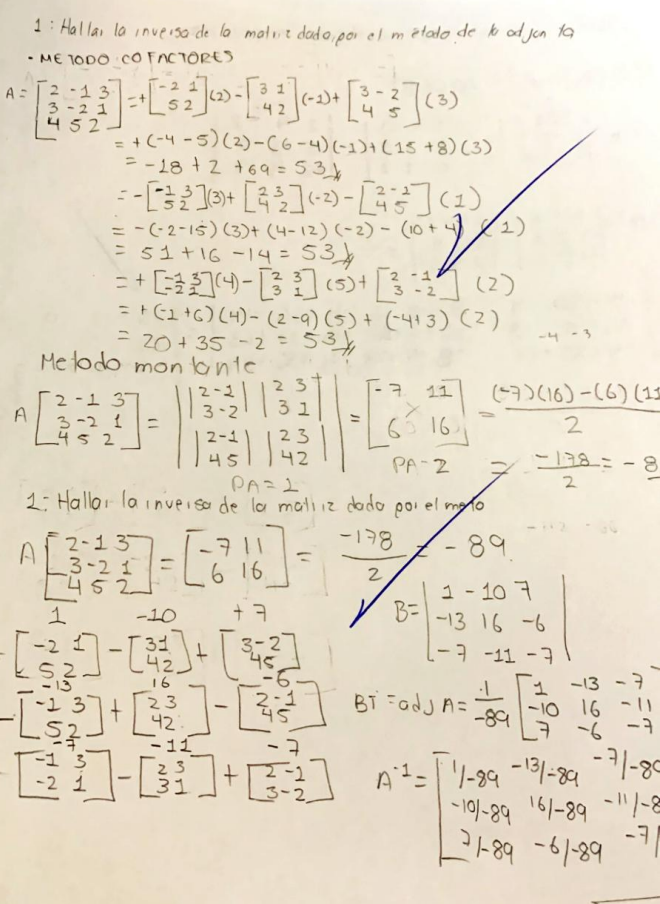 1: Hallar la inversa de la matriz dado, por el método de la adjunta
• METODO COFACTORES
A = [2 -1 3 / 3 -2 1 / 4 5 2] = +[-2 1 / 5 2](2) - [3 1 / 4 2](-1) + [3 -2 / 4 5](3)
= +(-4 -5)(2) - (6-4)(-1) + (15 +8)(3)
= -18 + 2 + 69 = 53
= -[-1 3 / 5 2](3) + [2 3 / 4 2](-2) - [2 -1 / 4 5](1)
= -(-2-15)(3) + (4-12)(-2) - (10 + 4)(1)
= 51 + 16 - 14 = 53
= +[-1 3 / -2 1](4) - [2 3 / 3 1](5) + [2 -1 / 3 -2](2)
= +(-1+6)(4) - (2-9)(5) + (-4+3)(2)
= 20 + 35 - 2 = 53
-4 -3
Metodo montante
A [2 -1 3 / 3 -2 1 / 4 5 2] = | |2 -1 / 3 -2| |2 3 / 3 1| / |2 -1 / 4 5| |2 3 / 4 2| | = [-7 11 / 6 16] = (-7)(16) - (6)(11 / 2
PA = 1
PA - 2
= -178 / 2 = -8
1: Hallar la inversa de la matriz dado por el meto
A [2 -1 3 / 3 -2 1 / 4 5 2] = [-7 11 / 6 16] = -178 / 2 = -89
1 -10 +7
[-2 1 / 5 2] - [3 1 / 4 2] + [3 -2 / 4 5]
B = |1 -10 7 / -13 16 -6 / -7 -11 -7|
-13 16 -6
-[-1 3 / 5 2] + [2 3 / 4 2] - [2 -1 / 4 5]
BT = adj A = 1 / -89 [1 -13 -7 / -10 16 -11 / 7 -6 -7
-7 -11 -7
[-1 3 / -2 1] - [2 3 / 3 1] + [2 -1 / 3 -2]
A-1 = [1/-89 -13/-89 -7/-89
-10/-89 16/-89 -11/-8
7/-89 -6/-89 -7/